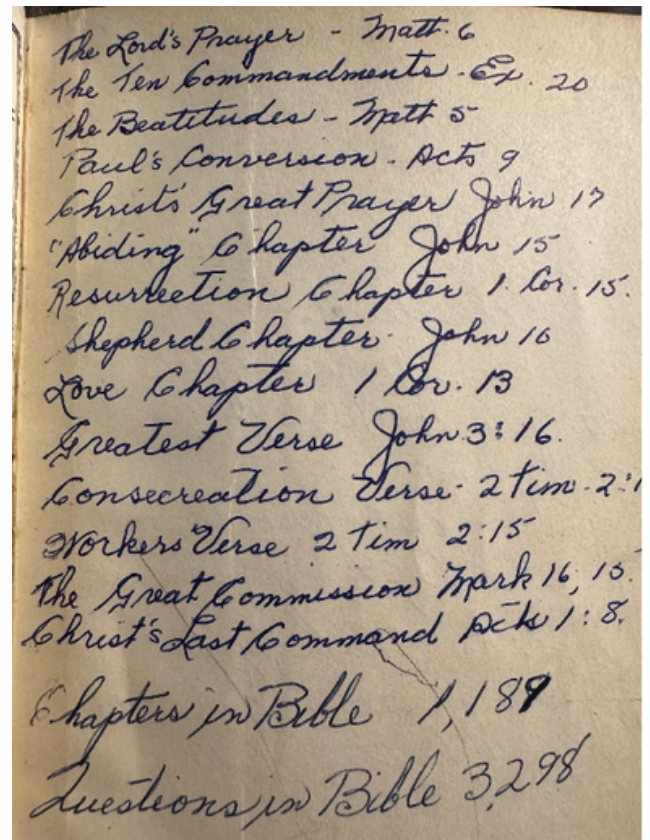 The Lord's Prayer - Matt. 6
The Ten Commandments - Ex. 20
The Beatitudes - Matt 5
Paul's Conversion - Acts 9
Christ's Great Prayer John 17
"Abiding" Chapter John 15
Resurrection Chapter 1 Cor. 15.
Shepherd Chapter John 10
Love Chapter 1 Cor. 13
Greatest Verse John 3:16.
Consecreation Verse - 2 Tim - 2:1
Workers Verse 2 Tim 2:15
The Great Commission Mark 16, 15.
Christ's Last Command Acts 1:8.
Chapters in Bible 1,189
Questions in Bible 3,298